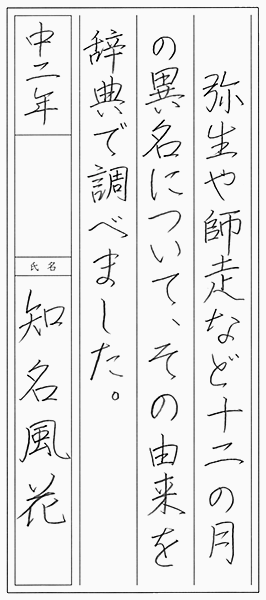 弥生や師走など十二の月
の異名について、その由来を
辞典で調べました。
中二年
氏名
知名風花